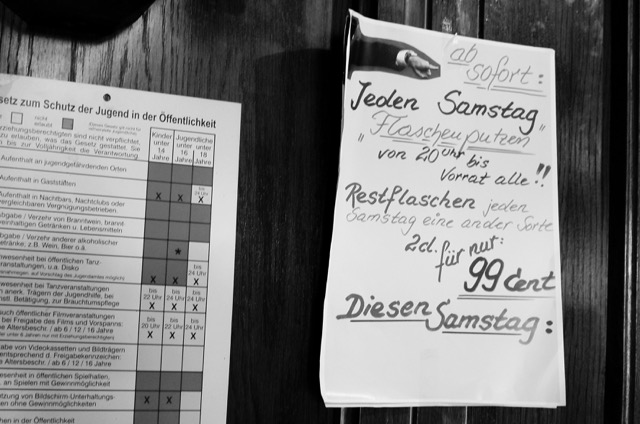 setz zum Schutz der Jugend in der Öffentlichkeit
erlaubt
nicht
erlaubt
ziehungsberechtigten sind nicht verpflichtet,
zu erlauben, was das Gesetz gestattet. Sie
n bis zur Volljährigkeit die Verantwortung.
Kinder
unter
14
Jahre
Jugendliche
unter unter
16 18
Jahre Jahre
Aufenthalt an jugendgefährdenden Orten
Aufenthalt in Gaststätten
bis
24 Uhr
X X X
Aufenthalt in Nachtbars, Nachtclubs oder
vergleichbaren Vergnügungsbetrieben.
bgabe / Verzehr von Branntwein, brannt-
Getränken u. Lebensmitteln
/ Verzehr anderer alkoholischer
etränke; z.B. Wein, Bier o.ä.
*
wesenheit bei öffentlichen Tanz-
anstaltungen, u.a. Disko
bis
24 Uhr
X X X
wesenheit bei Tanzveranstaltungen
anerk. Trägern der Jugendhilfe, bei
Betätigung, zur Brauchtumspflege
bis bis bis
22 Uhr 24 Uhr 24 Uhr
X X X
such öffentlicher Filmveranstaltungen
bei Freigabe des Films und Vorspanns:
e Altersbeschr. / ab 6 / 12 / 16 Jahre
bis bis bis
20 Uhr 22 Uhr 24 Uhr
X X X
abe von Videokassetten und Bildträgern
entsprechend d. Freigabekennzeichen:
e Altersbeschr. / ab 6 / 12 / 16 Jahre
esenheit in öffentlichen Spielhallen,
. an Spielen mit Gewinnmöglichkeit
tzung von Bildschirm-Unterhaltungs-
en ohne Gewinnmöglichkeit
X X
hen in der Öffentlichkeit
ab
sofort:
Jeden Samstag
„Flaschenputzen"
von 20 Uhr bis
Vorrat alle!!
Restflaschen jeden
Samstag eine ander Sorte
2cl. für nur:
99 Cent
Diesen Samstag: